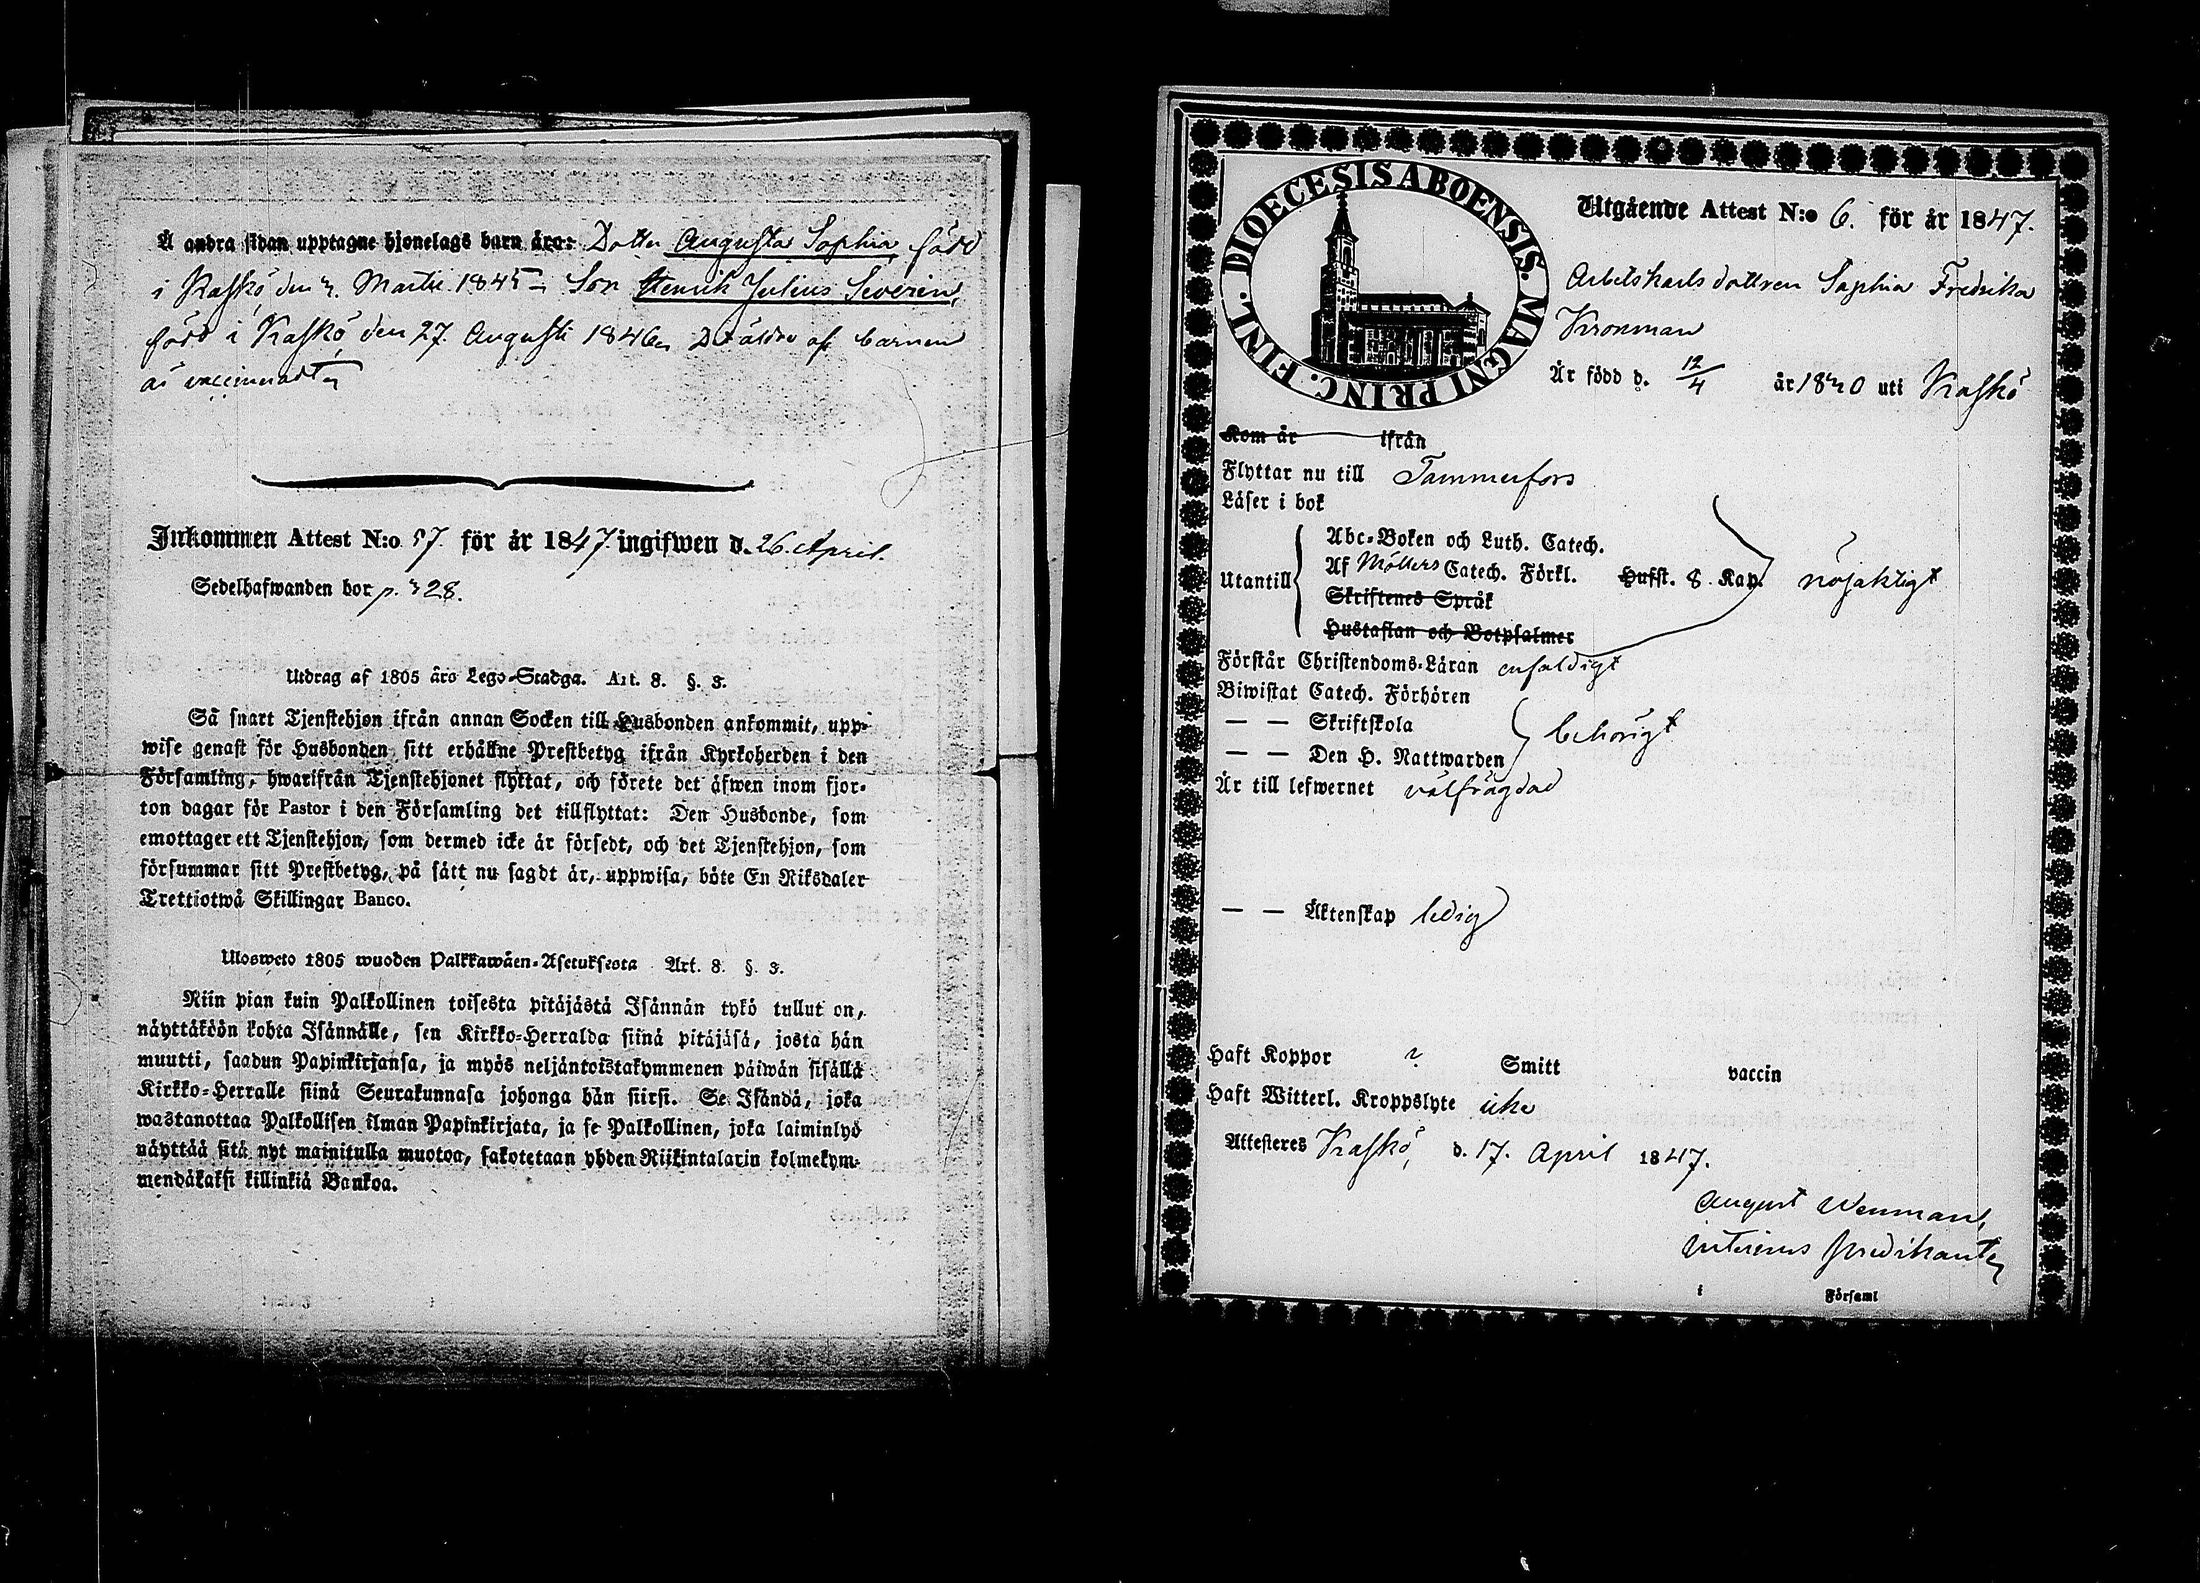 Å andra sidan upptagne hjonelags barn äro: Dotter Augusta Sophia, född
i Kaskö den 2. Martii 1845 Son Henrik Julius Severin,
född i Kaskö den 27. Augusti 1846. Det äldre af barnen
är vaccineradt
Inkommen Attest N:o 57. för år 1847. ingifwen d. 26. April.
Sedelhafwanden bor p. 328.
Utdrag af 1805 års Lego-Stadga. Art. 8. §. 3.
Så snart Tjenstehjon ifrån annan Socken till Husbonden ankommit, upp-
wise genast för Husbonden sitt erhållne Prestbetyg ifrån Kyrkoherden i den
Församling, hwarifrån Tjenstehjonet flyttat, och förete det äfwen inom fjor-
ton dagar för Pastor i den Församling det tillflyttat: Den Husbonde, som
emottager ett Tjenstehjon, som dermed icke är försedt, och det Tjenstehjon, som
försummar sitt Prestbetyg, på sätt nu sagdt är, uppwisa, böte En Riksdaler
Trettiotwå Skillingar Banco.
Ulosweto 1805 wuoden Palkkawäen-Asetuksesta Art. 8. §. 3.
Niin pian kuin Palkollinen toisesta pitäjästä Isännän tykö tullut on,
näyttäköön kohta Isännälle, sen Kirkko-Herralda siinä pitäjäsä, josta hän
muutti, saadun Papinkirjansa, ja myös neljäntoistakymmenen päiwän sisällä
Kirkko-Herralle siinä Seurakunnasa johonga hän siirsi. Se Isändä, joka
wastanottaa Palkollisen ilman Papinkirjata, ja se Palkollinen, joka laiminlyö
näyttää sitä nyt mainitulla muotoa, sakotetaan yhden Riikintalarin kolmekym-
mendäkaksi killinkiä Bankoa.
DIOECESIS ABOENSIS. MAGNI PRINC. FINL.
Utgående Attest N:o 6. för år 1847.
Arbetskarlsdottren Sophia Fredrika
Kronman
Är född d. 12/4 år 1820 uti Kaskö
Kom år ifrån
Flyttar nu till Tammerfors
Läser i bok
Utantill
Abc-Boken och Luth. Catech.
Af Möllers Catech. Förkl. Hufst. 8 Kap. nöjaktigt
Skriftenes Språk
Hustaflan och Botpsalmer
Förstår Christendoms-Läran enfaldigt
Biwistat Catech. Förhören
— — Skriftskola behörigt
— — Den H. Nattwarden
Är till lefwernet välfrägdad
— — Äktenskap ledig
Haft Koppor ? Smitt vaccin
Haft Witterl. Kroppslyte icke
Attesteres Kaskö, d. 17. April 1847.
August Wenman,
interims predikant
i Församl